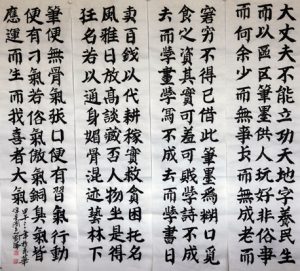 大丈夫不能立功天地字養生民
而以區區筆墨供人玩好非俗事
而何余少而無事長而無成老而
窮窘不得已借此筆墨爲糊口覓
食之資其實可羞可賤學詩不成
去而學寫學寫不成去而學畫日
賣百錢以代耕稼實救貧困托名
風雅日放高談臧否人物坐是得
狂名若以通身媚骨混迹藝林下
筆便無骨氣張口便有習氣行動
便有刁氣若俗氣傲氣銅臭氣皆
應運而生而我喜者大氣